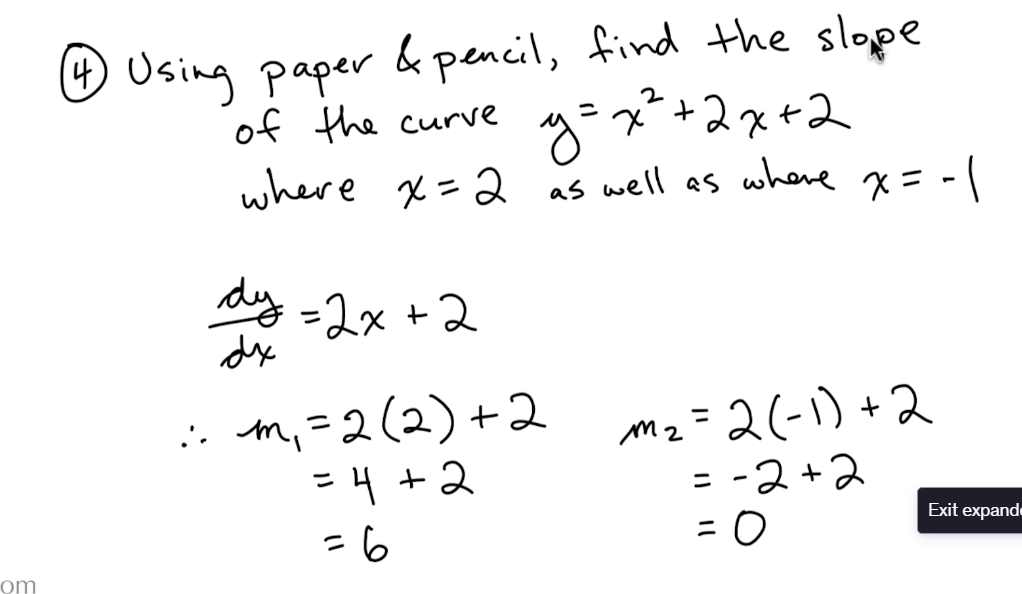 ④ Using paper & pencil, find the slope
of the curve y = x² + 2x + 2
where x = 2 as well as where x = -1
dy/dx = 2x + 2
∴ m₁ = 2(2) + 2
= 4 + 2
= 6
m₂ = 2(-1) + 2
= -2 + 2
= 0
Exit expande
om